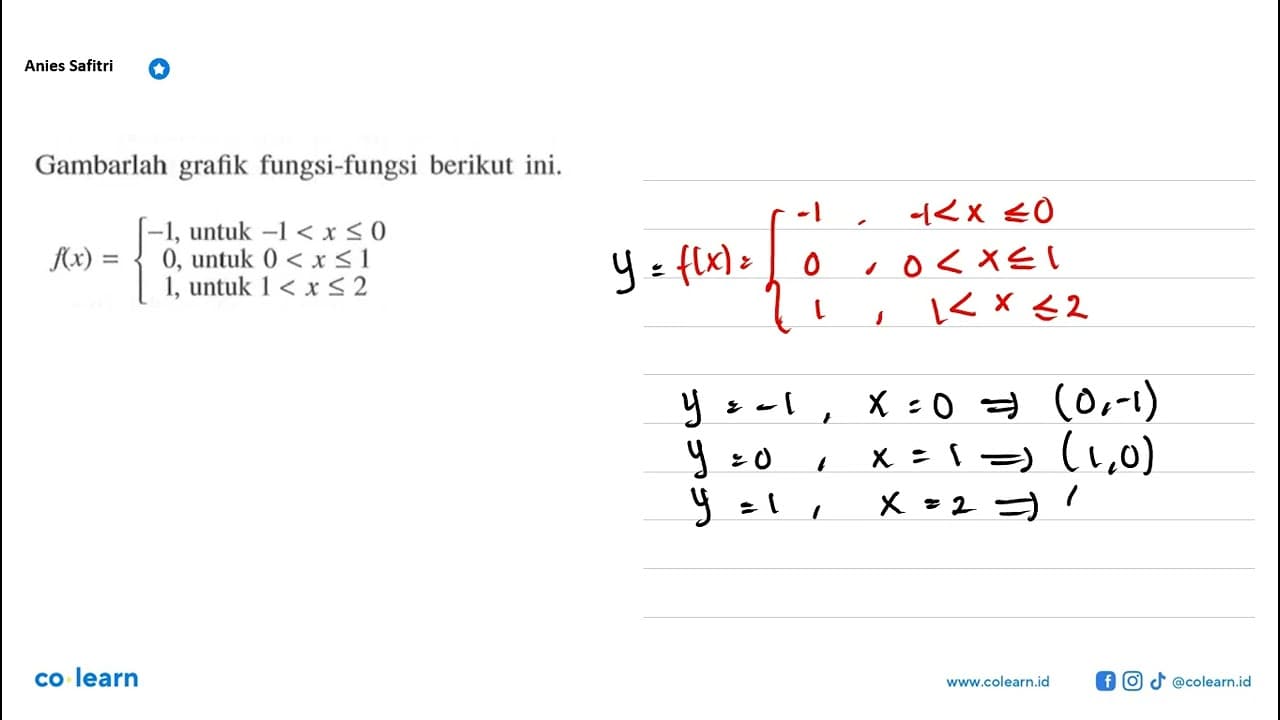 Anies Safitri
Gambarlah grafik fungsi-fungsi berikut ini.
f(x) = { -1, untuk -1 < x ≤ 0
0, untuk 0 < x ≤ 1
1, untuk 1 < x ≤ 2
y = f(x) = { -1 , -1 < x ≤ 0
0 , 0 < x ≤ 1
1 , 1 < x ≤ 2
y = -1 , x = 0 ⇒ (0,-1)
y = 0 , x = 1 ⇒ (1,0)
y = 1 , x = 2 ⇒ (
co learn
www.colearn.id
@colearn.id